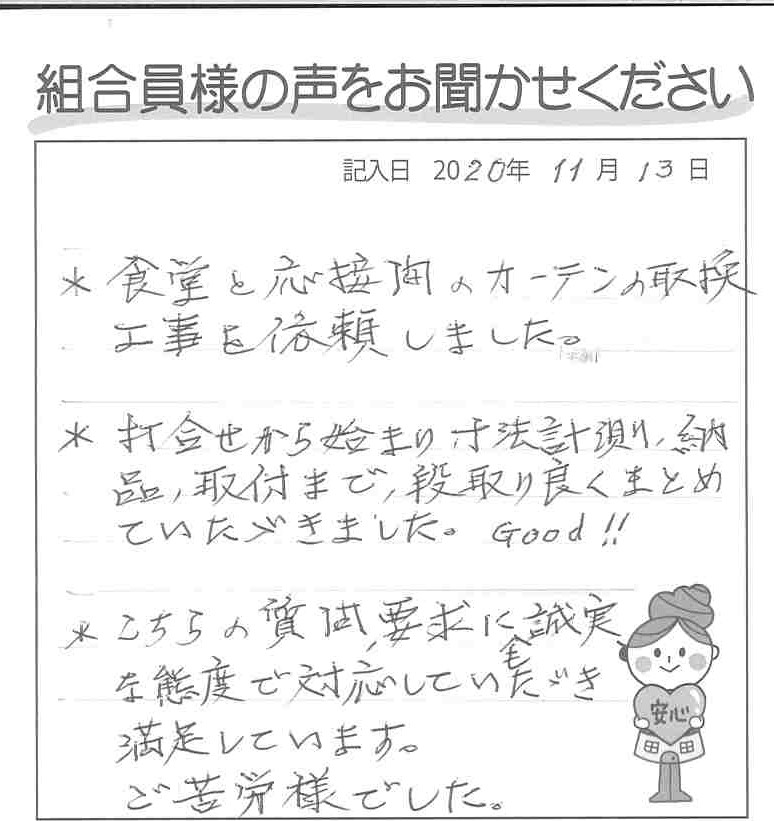 組合員様の声をお聞かせください
記入日 2020年 11月 13日
* 食堂と応接間のカーテンの取換
工事を依頼しました。
* 打合せから始まり寸法計測り、納
品、取付まで、段取り良くまとめ
ていただきました。 Good!!
* こちらの質問、要求に誠実
な態度で対応していただき
満足しています。
ご苦労様でした。
安心